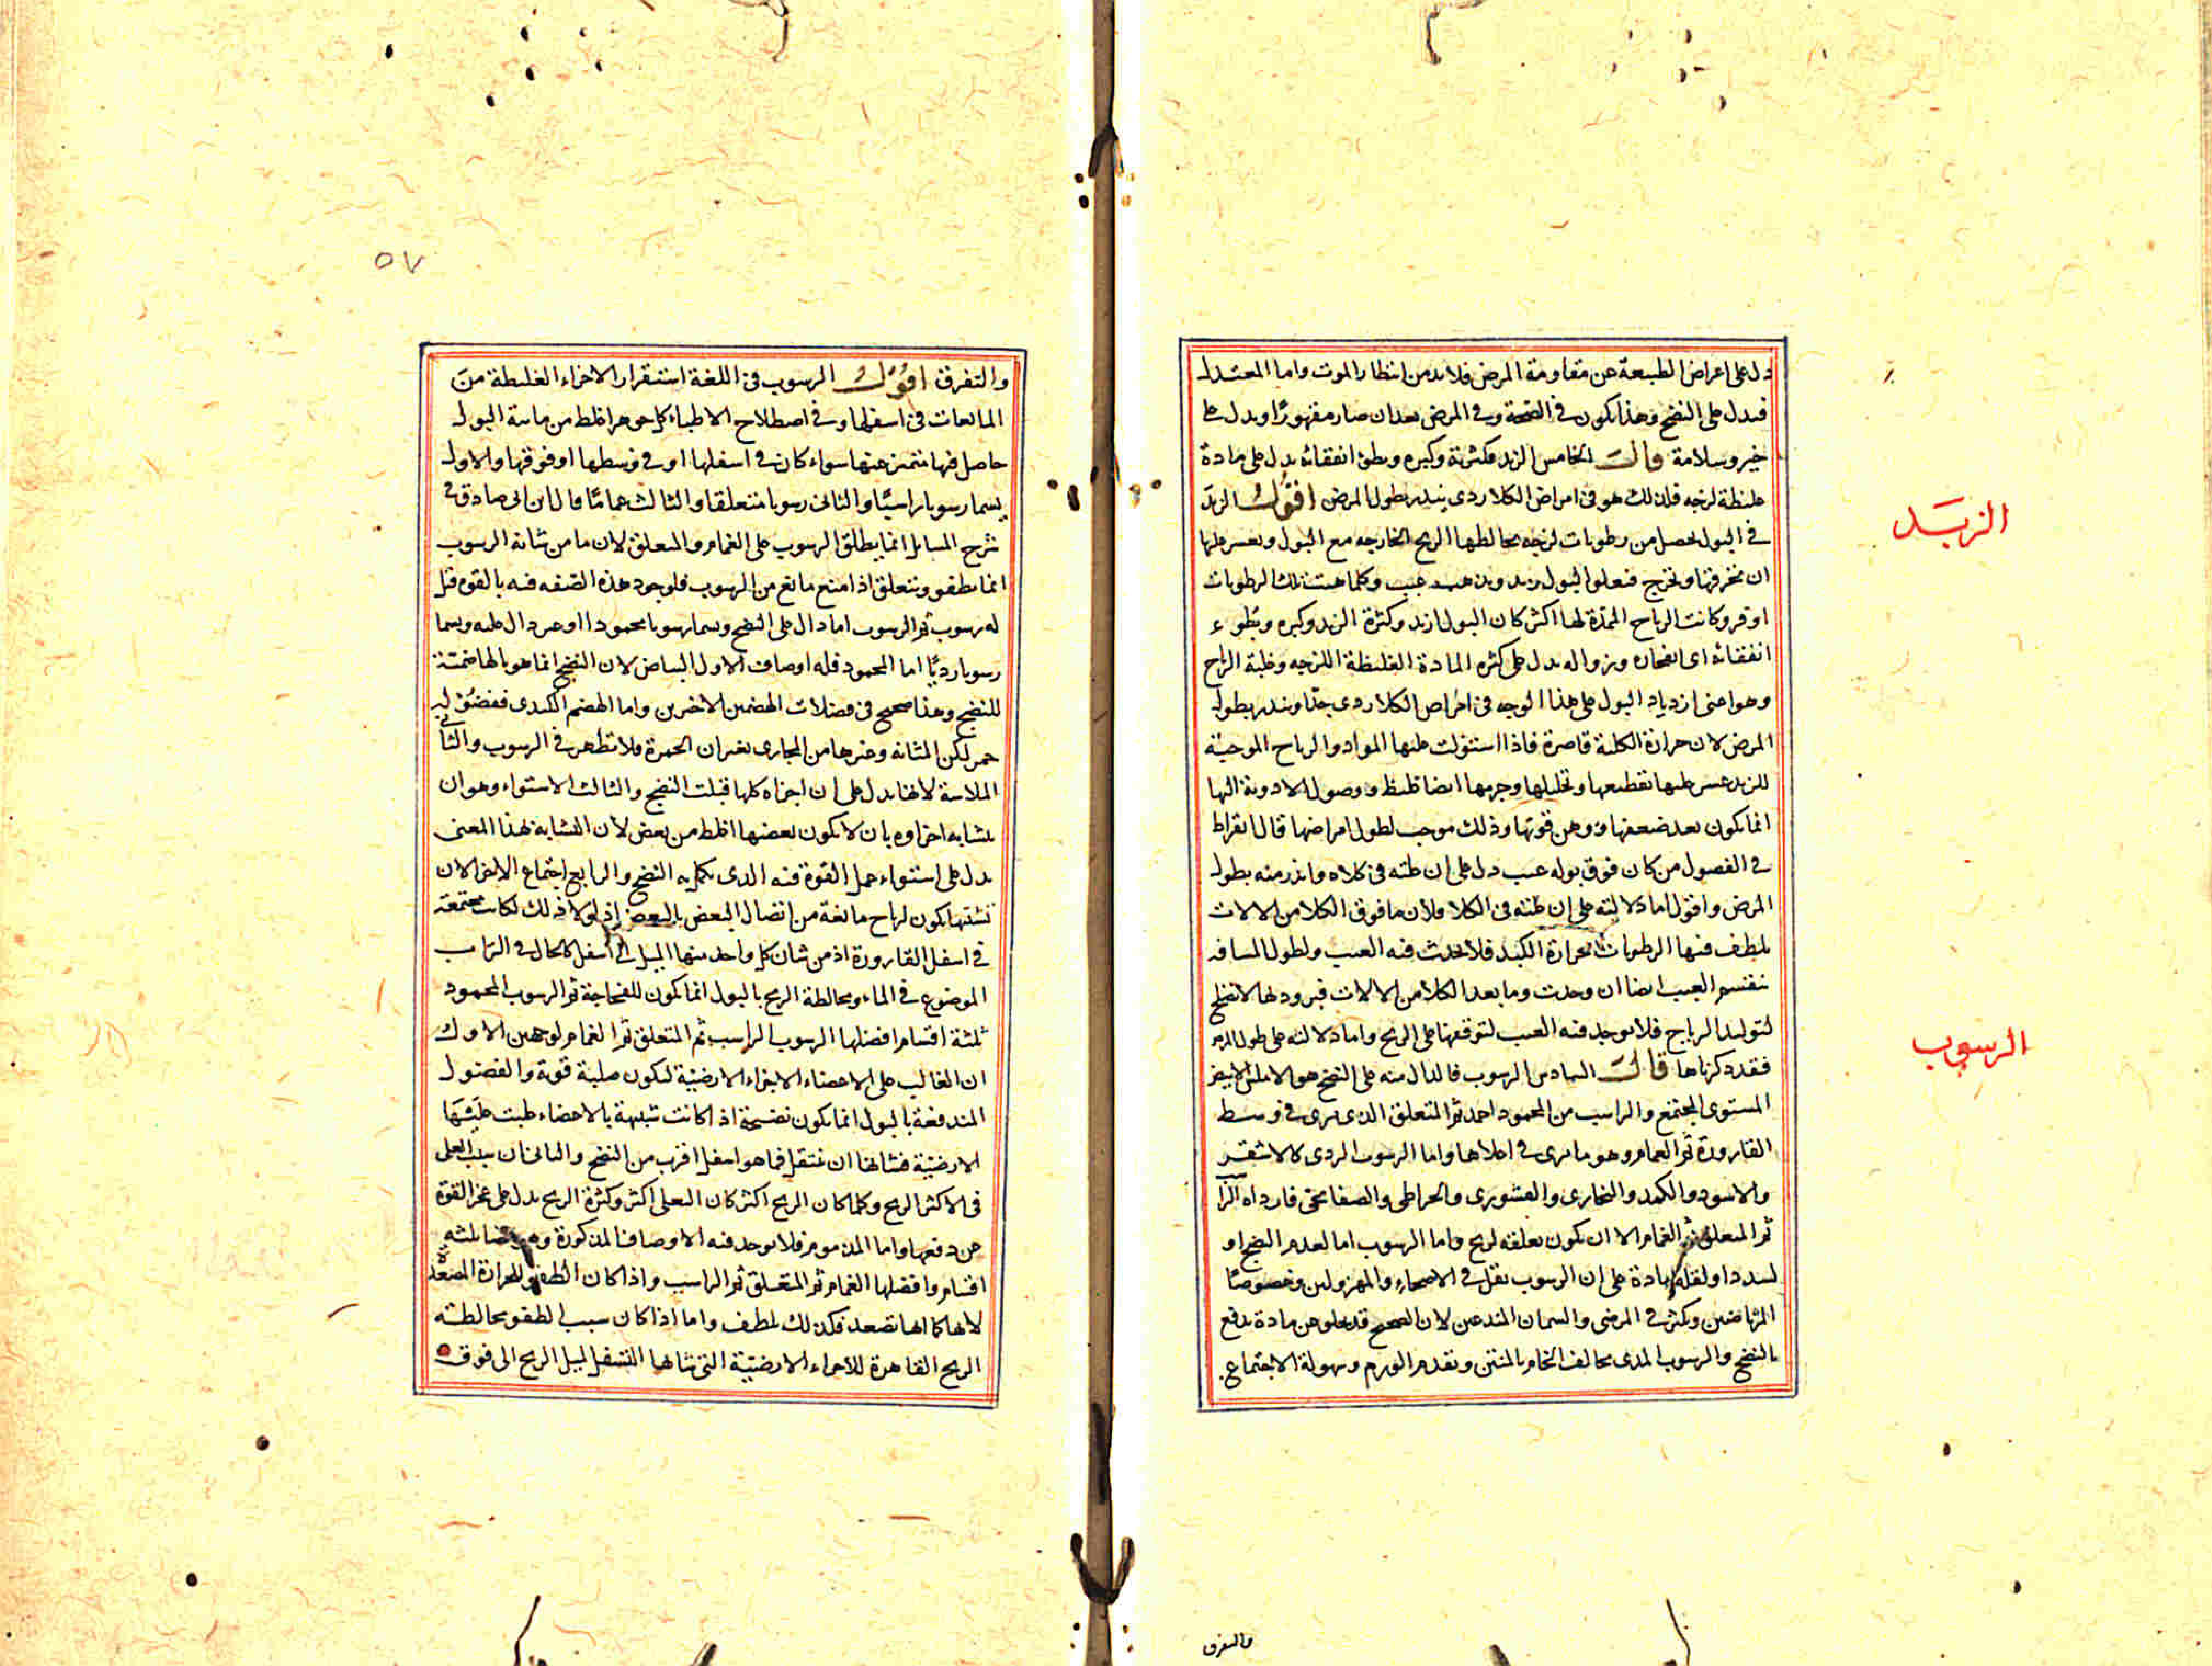 دل على اعراض الطبيعة عن مقاومة المرض فلا بد من انتظار الموت واما المعتدل
فيدل على النضج وهذا يكون في الصحة وفي المرض بعد ان صار مقهورًا ويدل على
خير وسلامة قال الخامس الزبد فكثرته وكبره وبطؤ انفقائه يدل على مادة
غليظة لزجه فلذلك هو في امراض الكلا ردى ينذر بطول المرض اقول الزبد
في البول يحصل من رطوبات لزجه يخالطها الريح الخارجه مع البول ويعسر عليها
ان تخرقها وتخرج فيعلو البول زبد وكلما كانت تلك الرطوبات
اوفر وكانت الرياح الممدة لها اكثر كان البول ازبد وكثرة الزبد وكبره وبطوء
انفقائه اى انفجاره وزواله يدل على كثره المادة الغليظة اللزجه وغلبة الرياح
وهو اعنى ازدياد البول على هذا الوجه في امراض الكلا ردى جدا وينذر بطول
المرض لان حرارة الكلية قاصرة فاذا استولت عليها المواد والرياح الموجبة
للزبد عسر عليها تقطيعها وتحليلها وجرمها ايضا غليظ ووصول الادوية اليها
انما يكون بعد ضعفها ووهن قوتها وذلك موجب لطول امراضها قال ابقراط
في الفصول من كان فوق بوله عبب دل على ان علته في كلاه وانذر منه بطول
المرض واقول اما دلالته على ان علته في الكلا فلان ما فوق الكلا من الالات
يلطف فيها الرطوبات بحرارة الكبد فلا يحدث فيه العبب ولطول المسافه
ينقسم العبب ايضا ان وحدت وما بعد الكلا من الالات فبرودتها لا تصلح
لتوليد الرياح فلا يوجد فيه العبب لتوقفها على الريح واما دلالته على طول المرض
فقد ذكرناها قال السادس الرسوب فالدال منه على النضج هو الاملس الابيض
المستوى المجتمع والراسب من المحمود احمد ثم المتعلق الذى يرى في وسط
القارورة ثم الغمام وهو ما يرى في اعلاها واما الرسوب الردى كالاشقر
والاسود والكمد والنخارى والقشورى والخراطى والصفائحى فارداه الرا
ثم المتعلق ثم الغمام الا ان يكون تعلقه لريح واما الرسوب اما لعدم النضج او
لسدد او لقلة مادة على ان الرسوب يقل في الاصحاء والمهزولين وخصوصًا
المرتاضين ويكثر في المرضى والسمان المتدعين لان الصحيح قد يخلو عن مادة تدفع
بالنضج والرسوب المدى يخالف الخام بالمنتن وتقدم الورم وسهولة الاجتماع
والتفرق
الزبد
الرسوب
٥٧
والتفرق اقول الرسوب في اللغة استقرار الاجزاء الغليظة من
المايعات في اسفلها وفي اصطلاح الاطباء كل جوهر اغلظ من مائية البول
حاصل فيها متميز عنها سواء كان في اسفلها او في وسطها او فوقها والاول
يسما رسوبا راسبًا والثانى رسوبا متعلقا والثالث غمامًا قال ابن ابى صادق في
شرح المسايل انما يطلق الرسوب على الغمام والمتعلق لان ما من شانه الرسوب
انما يطفو ويتعلق اذا منع مانع من الرسوب فلوجود هذه الصفه فيه بالقوه قيل
له رسوب ثم الرسوب اما دال على النضج ويسما رسوبا محمودا او غير دال عليه ويسما
رسوبا رديًا اما المحمود فله اوصاف الاول البياض لان النضج انما هو بالهاضمة
للنضج وهذا صحيح في فضلات الهضمين الاخيرين واما الهضم الكبدى ففضوله
حمر لكن المثانه وغيرها من المجارى يغيران الحمرة فلا تظهر في الرسوب والثانى
الملاسة لانها يدل على ان اجزاه كلها قبلت النضج والثالث الاستواء وهو ان
يتشابه اجزاوه بان لا يكون بعضها اغلظ من بعض لان التشابه بهذا المعنى
يدل على استواء حمل القوة فيه الذى يكمل به النضج والرابع اجتماع الاجزا لان
تشتتها يكون لرياح مانعة من اتصال البعض بالبعض اذ لولا ذلك لكانت مجتمعة
في اسفل القارورة اذ من شان كل واحد منها الميل الى اسفل كالحال في التراب
الموضوع في الماء ومخالطة الريح بالبول انما يكون للفجاجة ثم الرسوب المحمود
ثلثة اقسام افضلها الرسوب الراسب ثم المتعلق ثم الغمام لوجهين الاول
ان الغالب على الاعضاء الاجزاء الارضية لتكون صلبة قوية والفضول
المندفعة بالبول انما يكون نضيجة اذا كانت شبيهة بالاعضاء
الارضية فشانها ان تنتقل فما هو اسفل اقرب من النضج والثانى ان سبب التعلق
في الاكثر الريح وكلما كان الريح اكثر كان التعلق اكثر وكثرة الريح يدل على عجز القوة
عن دفعها واما المذموم فلا يوجد فيه الاوصاف المذكورة وهو ايضا ثلثة
اقسام وافضلها الغمام ثم المتعلق ثم الراسب واذا كان الطفو للحرارة المصعدة
لانها كما انها تصعد فكذلك تلطف واما اذا كان سبب الطفو مخالطة
الريح القاهرة للاجزاء الارضية التى شانها التسفل لميل الريح الى فوق